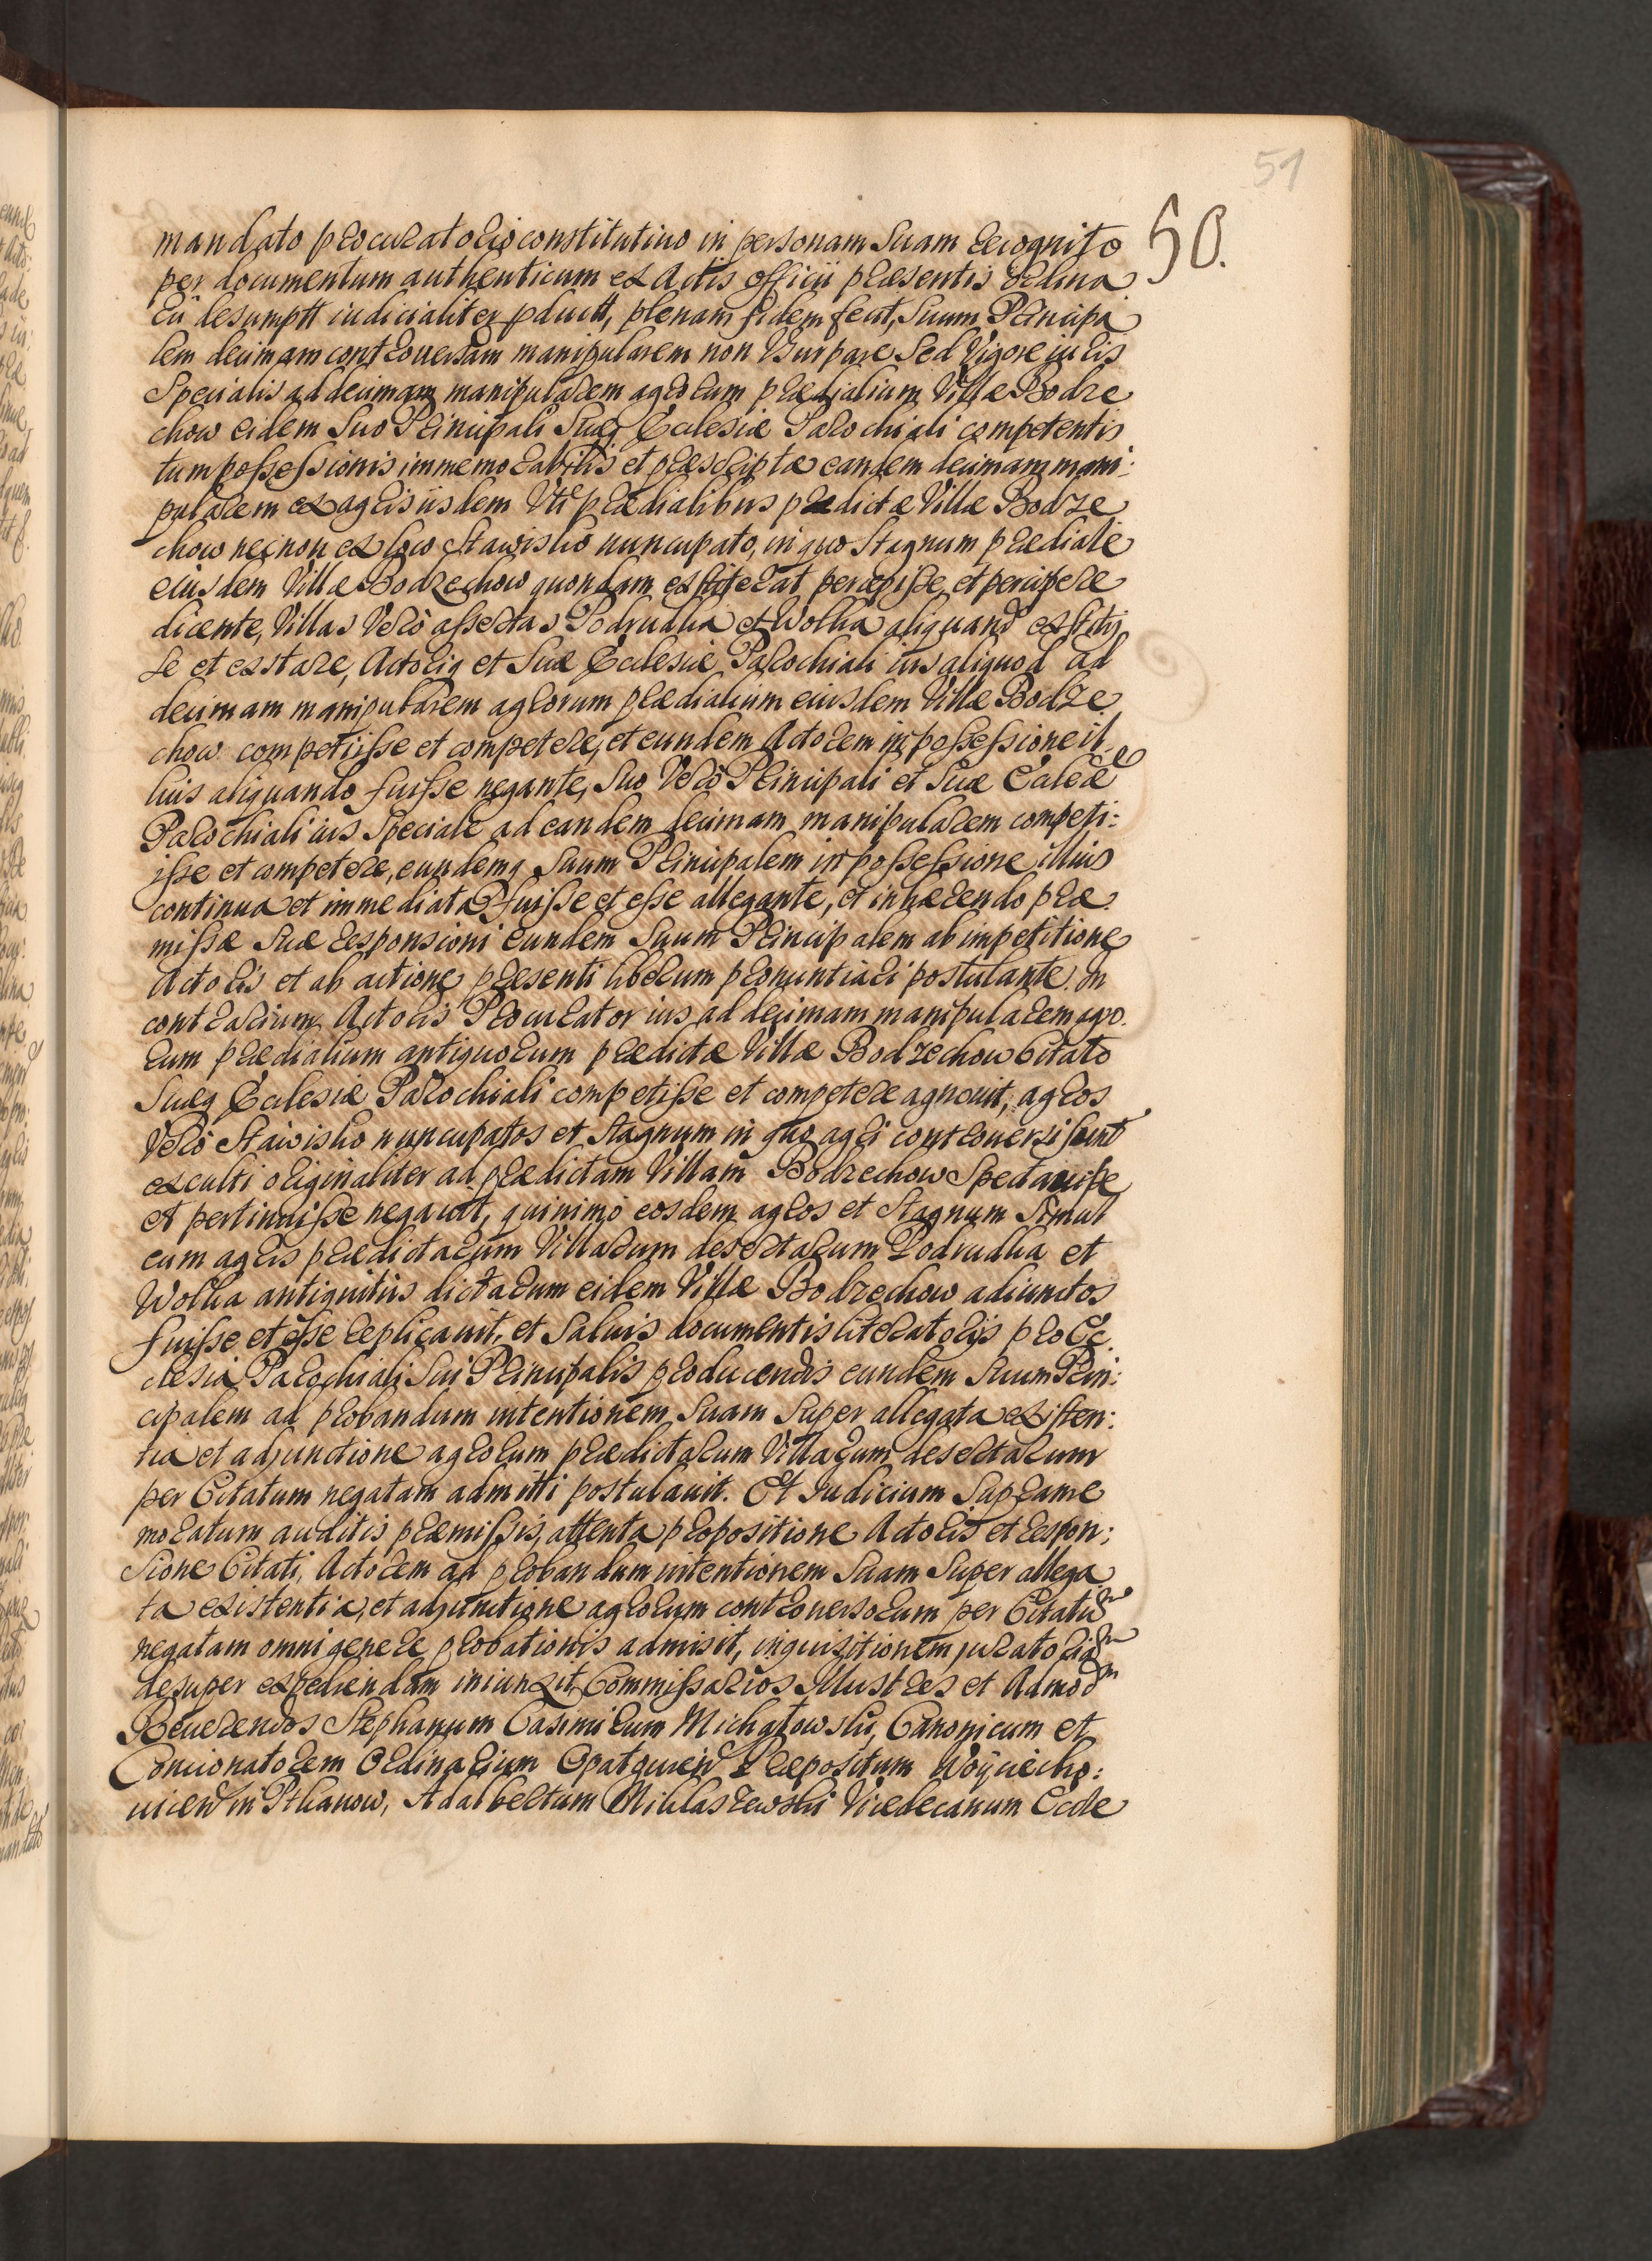 51
50.
mandato procuratorio constitutivo in personam Suam recognito
per documentum authenticum ex Actis officij præsentis ordina
riû desumptt iudicialiter pductt, plenam fidem fecit, Suum Principa
lem decimam controversam manipularem non Vsurpare Sed Vigore iuris
Specialis ad decimam manipularem agrorum prædialium Villæ Bodze
chow eidem Suo Principali Suæq Ecclesiæ Parochiali competentis
tum possessionis immemorabilis et præscriptæ eandem decimam mani:
pularem ex agris iisdem Vti prædialibus prædictæ Villæ Bodze
chow nec non ex loco Stawisko nuncupato, in quo Stagnum prædiale
eiusdem Villæ Bodzechow quondam exstiterat percepisse, et percipere
dicente, Villas Verò assertas Podrudka et Wolka aliquando exstitis
se et exstare, Actoriq et Suæ Ecclesiæ Parochiali ius aliquod ad
decimam manipularem agrorum prædialium eiusdem Villæ Bodze
chow competiisse et competere, et eundem Actorem in possessione il
lius aliquando fuisse negante, Suo Verò Principali et Suæ Eccleæ
Parochiali ius Speciale ad eandem decimam manipularem competi:
isse et competere, eundemq Suum Principalem in possessione illius
continua et immediata fuisse et esse allegante, et inhærendo præ
missæ Suæ responsioni eundem Suum Principalem ab impetitione
Actoris et ab actione præsenti liberum pronuntiari postulante. In
contrarium Actoris Procurator ius ad decimam manipularem agro
rum prædialium antiquorum prædictæ Villæ Bodzechow Citato
Suæq Ecclesiæ Parochiali competisse et competere agnovit, agros
Verò Stawisko nuncupatos et Stagnum in quo agri controversi sunt
exculti originaliter ad prædictam Villam Bodzechow Spectavisse
et pertinuisse negavitt, quinimò eosdem agros et Stagnum Simul
cum agris prædictarum Villarum desertarum Podrudka et
Wolka antiquitùs dictarum eidem Villæ Bodzechow adiunctos
fuisse et esse replicavit, et Salvis documentis literatorijs pro Ec
clesia Parochiali Sui Principalis producendis eundem Suum Prin:
cipalem ad probandum intentionem Suam Super allegata existen:
tia et adjunctione agrorum prædictarum Villarum desertarum
per Citatum negatam admitti postulavit. Et Iudicium Suprame
moratum auditis præmissis, attenta propositione Actoris et respon:
sione Citati, Actorem ad probandum intentionem Suam Super allega
ta existentia, et adjunctione agrorum controversorum per Citatum
negatam omni genere probationis admisit, inquisitionem juratoriam
desuper expediendam iniunxit, Commissarios Illustres et Admodm
Reverendos Stephanum Casimirum Michałowski, Canonicum et
Concionatorem Ordinarium Præpositum
in Adalbertum Miklaszewski Vicedecanum Eccle